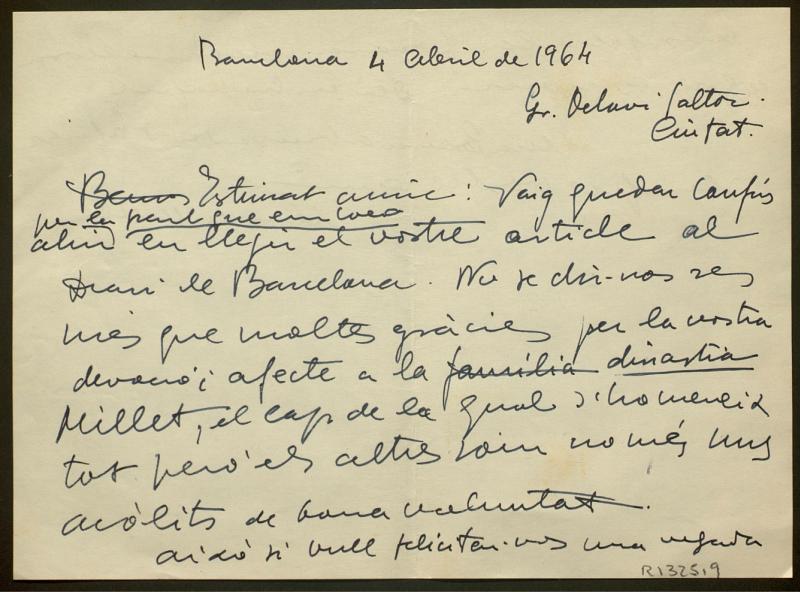 Barcelona 4 abril de 1964
Gr. Octavi Saltor.
Ciutat.
Estimat amic: Vaig quedar confús
per la part que em toca
ahir en llegir el vostre article al
Diari de Barcelona. No se dir-vos res
més que moltes gràcies per la vostra
devoció i afecte a la família dinastia
Millet, el cap de la qual s'homeneix
tot però els altres som només uns
acòlits de bona voluntat.
això si vull felicitar-vos una vegada
R1325,9